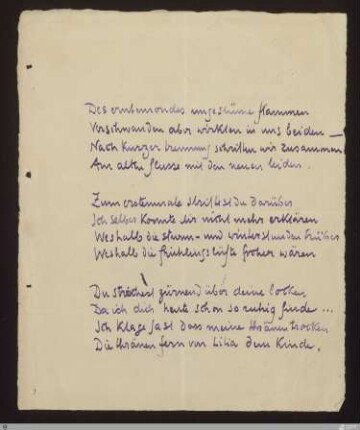 Des erntemondes ungestüme flammen
Verschwanden aber wirkten in uns beiden —
Nach kurzer trennung schritten wir zusammen
Am alten flusse mit den neuen leiden.
Zum erstenmale strittest du darüber
Ich selber konnte dir nicht mehr erklären
Weshalb die sturm- und winterstunden trüber
Weshalb die frühlingslüfte froher wären
Du streichest zürnend über deine locken
Da ich dich heute schon so ruhig finde ...
Ich klage fast dass meine thränen trocken
Die thränen fern von Lilia dem Kinde.